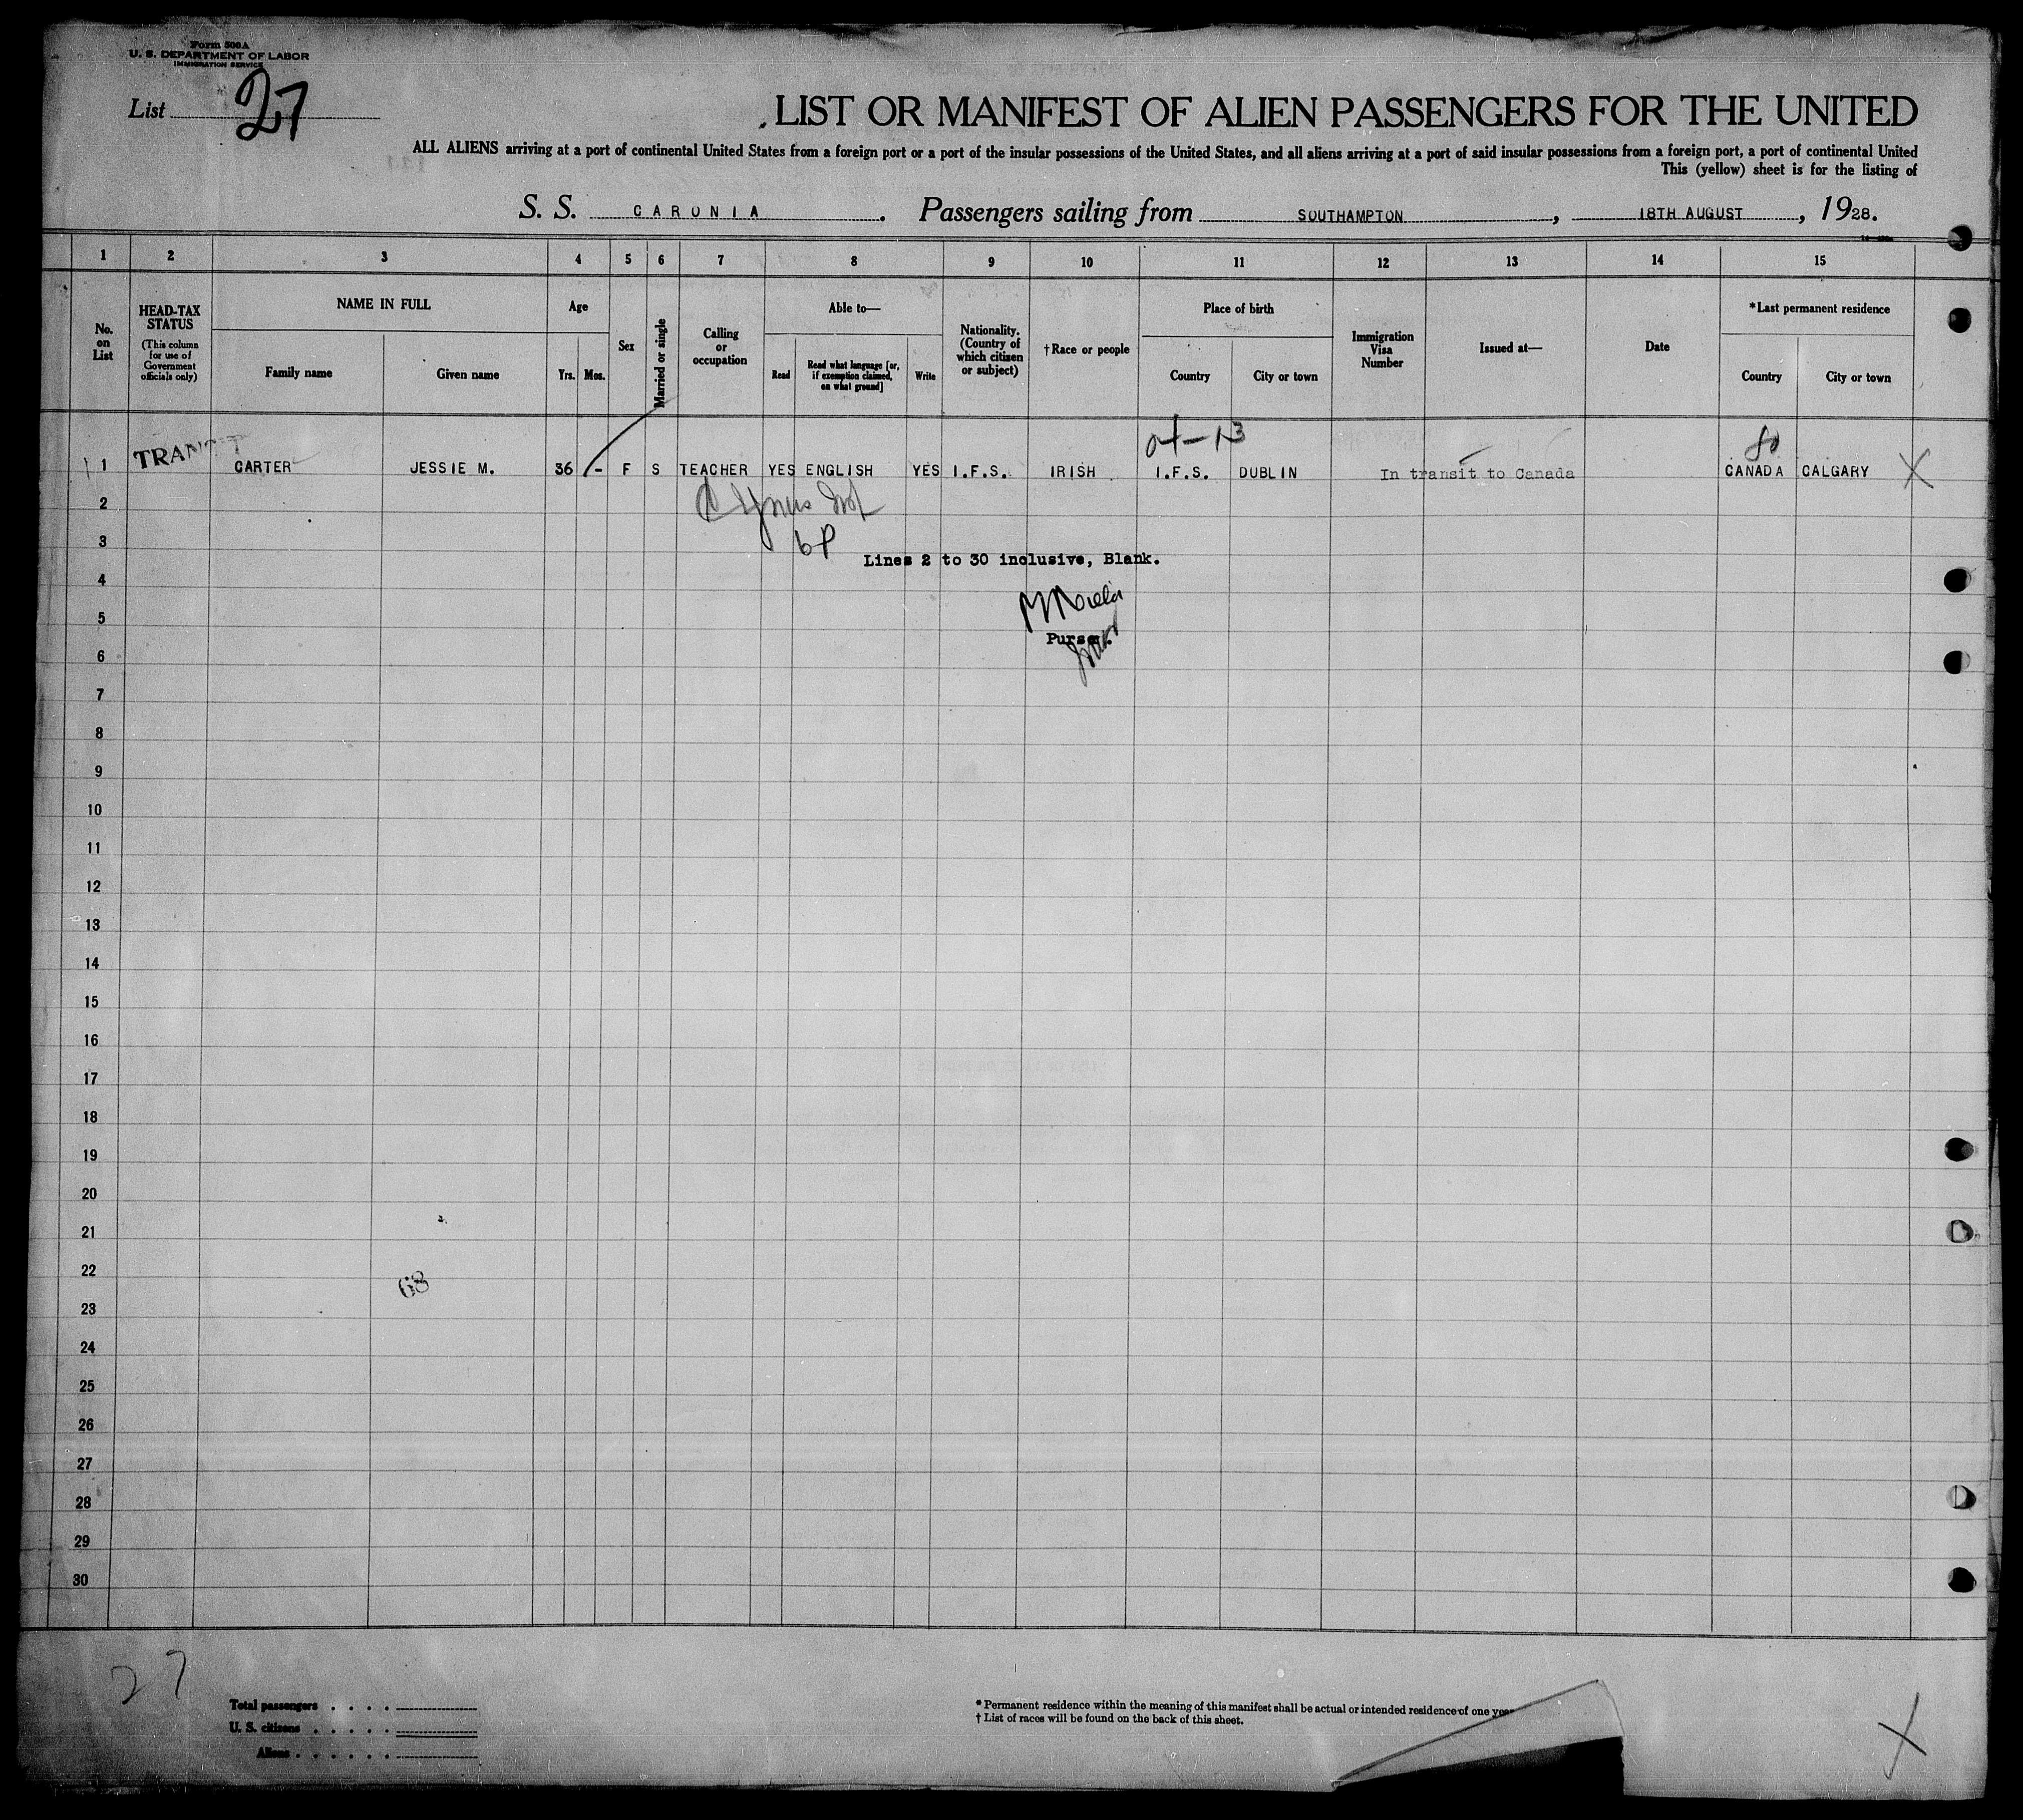 Form 500A
U. S. DEPARTMENT OF LABOR
IMMIGRATION SERVICE
List 27
LIST OR MANIFEST OF ALIEN PASSENGERS FOR THE UNITED
ALL ALIENS arriving at a port of continental United States from a foreign port or a port of the insular possessions of the United States, and all aliens arriving at a port of said insular possessions from a foreign port, a port of continental United
This (yellow) sheet is for the listing of
S. S. CARONIA. Passengers sailing from SOUTHAMPTON, 18TH AUGUST, 1928.
1 2 3 4 5 6 7 8 9 10 11 12 13 14 15
No. on List
HEAD-TAX STATUS (This column for use of Government officials only)
NAME IN FULL
Family name Given name
Age
Yrs. Mos.
Sex
Married or single
Calling or occupation
Able to—
Read
Read what language [or, if exemption claimed, on what ground]
Write
Nationality. (Country of which citizen or subject)
†Race or people
Place of birth
Country City or town
Immigration Visa Number
Issued at—
Date
*Last permanent residence
Country City or town
80
1 TRANSIT CARTER JESSIE M. 36 - F S TEACHER YES ENGLISH YES I.F.S. IRISH I.F.S. DUBLIN In transit to Canada CANADA CALGARY X
2
3
Lines 2 to 30 inclusive, Blank.
4
5
Purser.
6
7
8
9
10
11
12
13
14
15
16
17
18
19
20
21
22
68
23
24
25
26
27
28
29
30
27
Total passengers . . . .
U. S. citizens . . . . .
Aliens . . . . . .
* Permanent residence within the meaning of this manifest shall be actual or intended residence of one year
† List of races will be found on the back of this sheet.
X